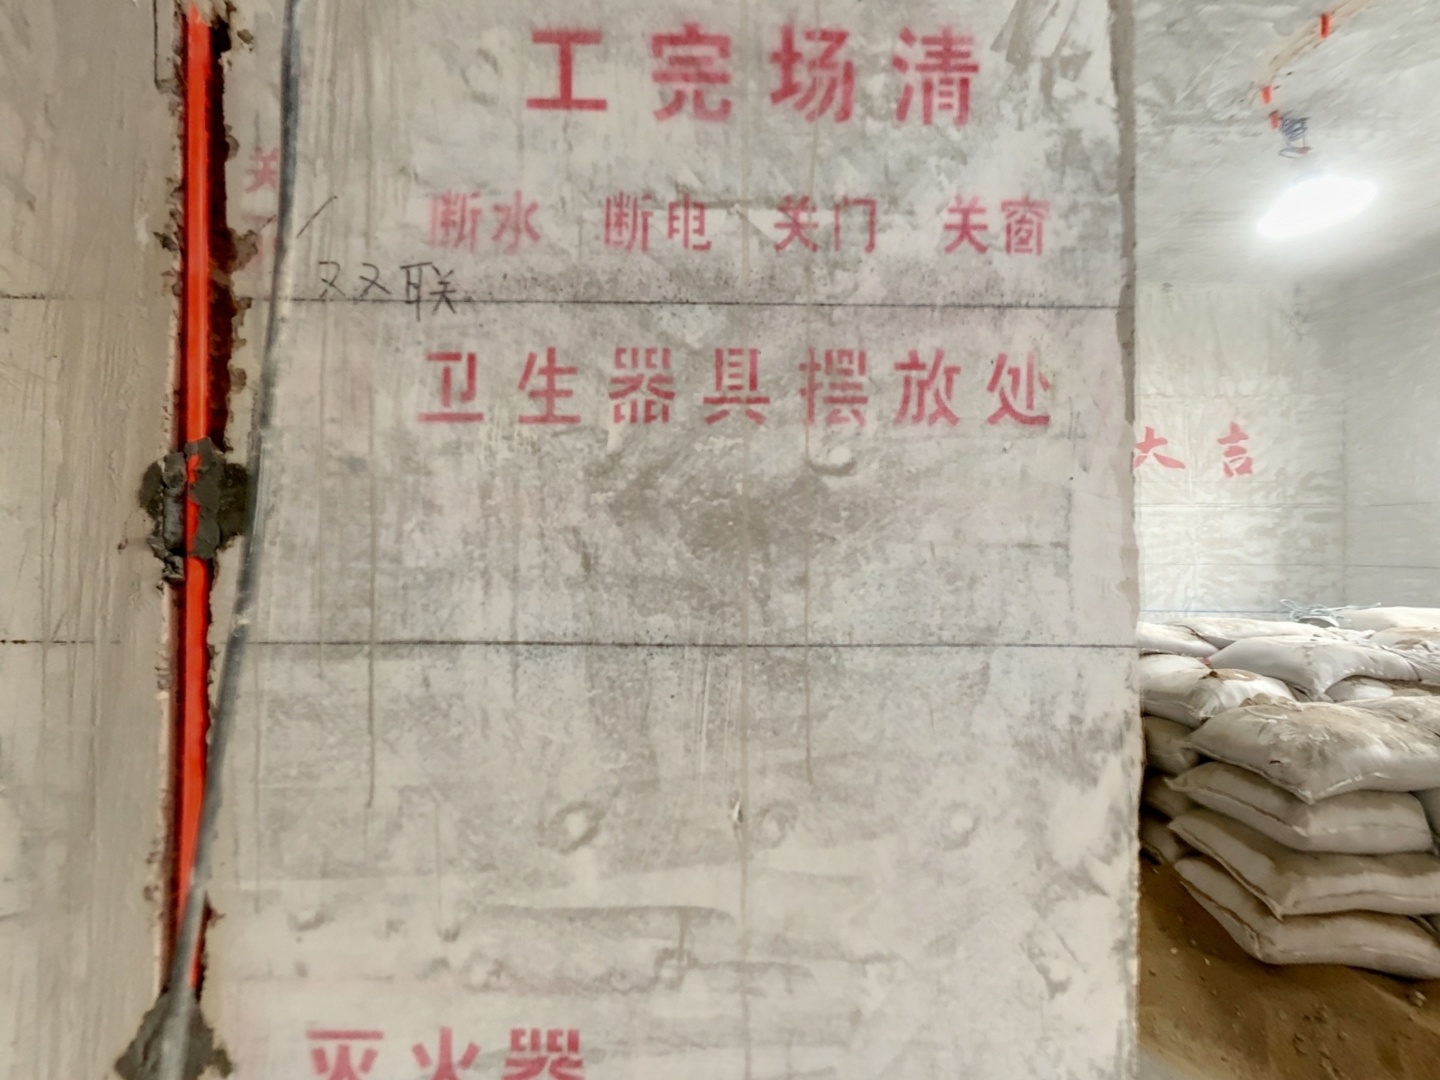 工完场清
关
断水 断电 关门 关窗
双联
卫生器具摆放处
大吉
灭火器